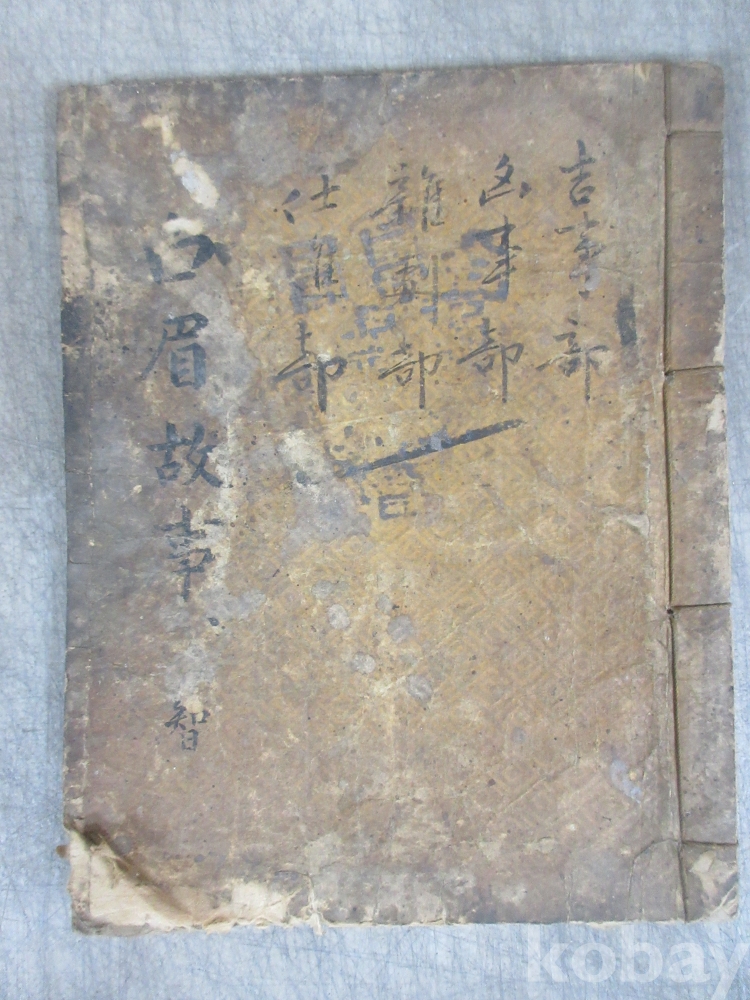 吉事部
凶事部
雜剌部
仕進部
白眉故事
智
kobay